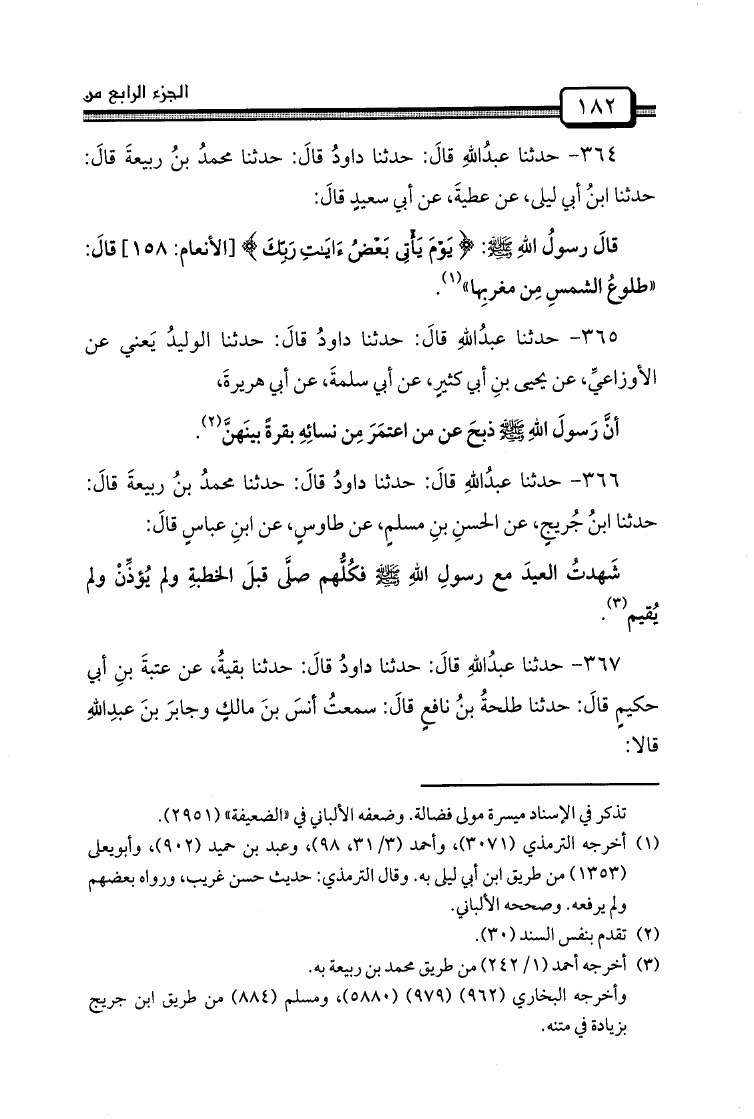 الجزء الرابع من
١٨٢
٣٦٤- حدثنا عبدُاللهِ قالَ: حدثنا داودُ قالَ: حدثنا محمدُ بنُ ربيعةَ قالَ:
حدثنا ابنُ أبي ليلى، عن عطيةَ، عن أبي سعيدٍ قالَ:
قالَ رسولُ اللهِ ﷺ: ﴿يَوْمَ يَأْتِى بَعْضُ ءَايَٰتِ رَبِّكَ﴾ [الأنعام: ١٥٨] قالَ:
«طلوعُ الشمسِ مِن مغربِها»(١).
٣٦٥- حدثنا عبدُاللهِ قالَ: حدثنا داودُ قالَ: حدثنا الوليدُ يَعني عن
الأوزاعيِّ، عن يحيى بنِ أبي كثيرٍ، عن أبي سلمةَ، عن أبي هريرةَ،
أنَّ رَسولَ اللهِ ﷺ ذبحَ عن من اعتمَرَ مِن نسائِهِ بقرةً بينَهنَّ(٢).
٣٦٦- حدثنا عبدُاللهِ قالَ: حدثنا داودُ قالَ: حدثنا محمدُ بنُ ربيعةَ قالَ:
حدثنا ابنُ جُريجٍ، عن الحسنِ بنِ مسلمٍ، عن طاوسٍ، عن ابنِ عباسٍ قالَ:
شَهدتُ العيدَ مع رسولِ اللهِ ﷺ فكُلُّهم صلَّى قبلَ الخطبةِ ولم يُؤذِّنْ ولم
يُقيم(٣).
٣٦٧- حدثنا عبدُاللهِ قالَ: حدثنا داودُ قالَ: حدثنا بقيةُ، عن عتبةَ بنِ أبي
حكيمٍ قالَ: حدثنا طلحةُ بنُ نافعٍ قالَ: سمعتُ أنسَ بنَ مالكٍ وجابرَ بنَ عبدِاللهِ
قالا:
تذكر في الإسناد ميسرة مولى فضالة. وضعفه الألباني في «الضعيفة» (٢٩٥١).
(١) أخرجه الترمذي (٣٠٧١)، وأحمد (٣/ ٣١، ٩٨)، وعبد بن حميد (٩٠٢)، وأبويعلى
(١٣٥٣) من طريق ابن أبي ليلى به. وقال الترمذي: حديث حسن غريب، ورواه بعضهم
ولم يرفعه. وصححه الألباني.
(٢) تقدم بنفس السند (٣٠).
(٣) أخرجه أحمد (١/ ٢٤٢) من طريق محمد بن ربيعة به.
وأخرجه البخاري (٩٦٢) (٩٧٩) (٥٨٨٠)، ومسلم (٨٨٤) من طريق ابن جريج
بزيادة في متنه.